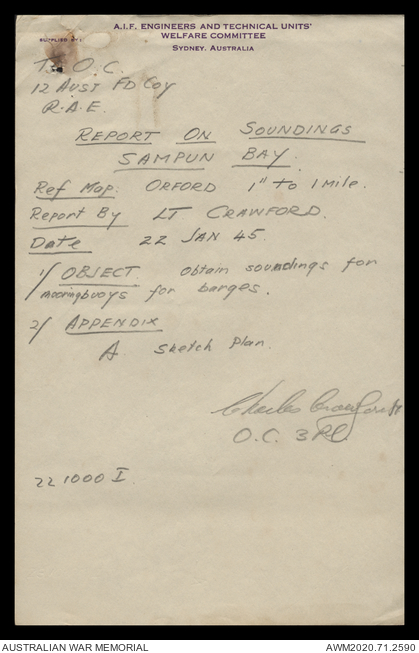 A.I.F. ENGINEERS AND TECHNICAL UNITS'
WELFARE COMMITTEE
SYDNEY, AUSTRALIA
SUPPLIED BY
To O.C.
12 AUST FD COY
R.A.E.
REPORT ON SOUNDINGS
SAMPUN BAY.
Ref Map: ORFORD 1" to 1 mile.
Report By LT CRAWFORD.
Date 22 JAN 45.
1/ OBJECT. Obtain soundings for
mooring buoys for barges.
2/ APPENDIX
A Sketch Plan.
Charles Crawford Lt
O.C. 3 Pl.
22 1000 I
AUSTRALIAN WAR MEMORIAL
AWM2020.71.2590